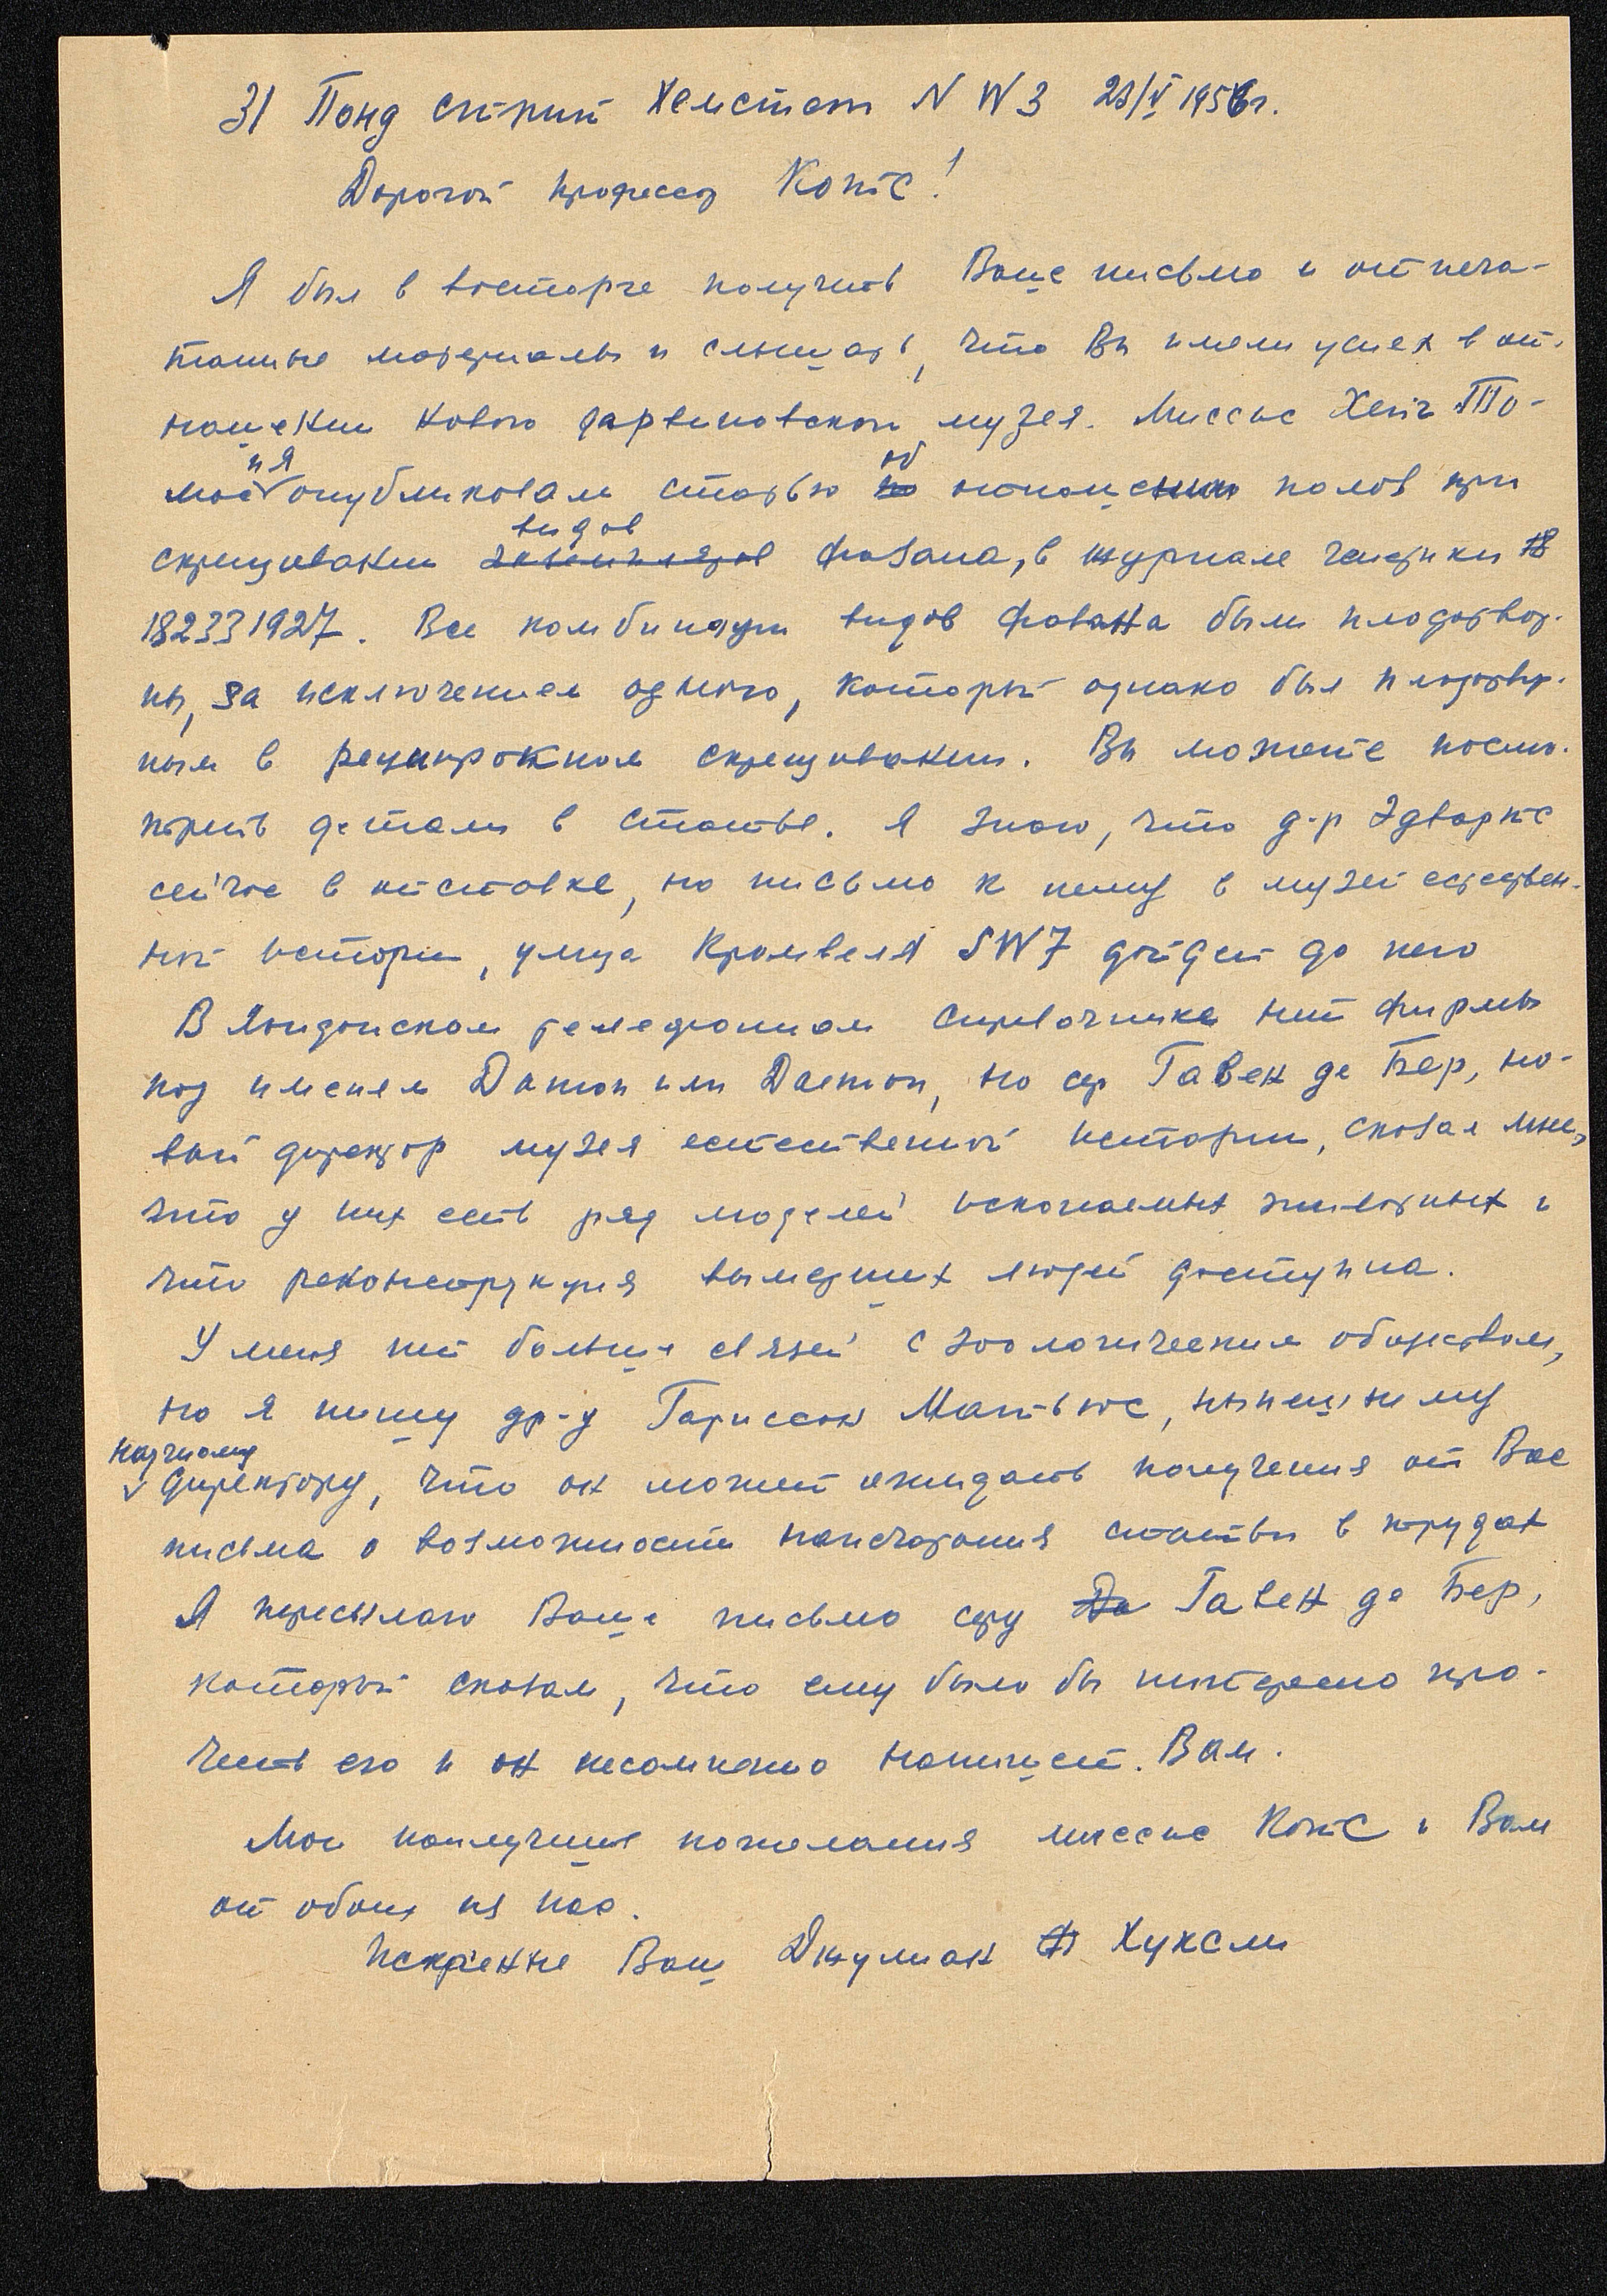 31 Понд стрит Хемстет N W 3 28/V 1956 г.
Дорогой профессор Котс!
Я был в восторге получить Ваше письмо и отпеча-
танные материалы и слышать, что Вы имели успех в от-
ношении нового дарвиновского музея. Миссис Хейг То-
мас и я опубликовали статью об отношении полов при
скрещивании видов фазана, в журнале генетики 18
18233 1927. Все комбинации видов фазана были плодотвор-
ны, за исключением одного, который однако был плодотвор-
ным в реципрокном скрещивании. Вы можете посмо-
треть детали в статье. Я знаю, что д-р Эдвардс
сейчас в отставке, но письмо к нему в музей естествен-
ной истории, улица Кромвеля SW7 дойдет до него
В Лондонском телефонном справочнике нет фирмы
под именем Damon или Daemon, но сэр Гавен де Бер, но-
вый директор музея естественной истории, сказал мне,
что у них есть ряд моделей ископаемых животных и
что реконструкция вымерших людей доступна.
У меня нет больше связей с зоологическим обществом,
но я пишу др-у Гариссон Матьюс, нынешнему
научному
директору, что он может ожидать получения от Вас
письма о возможности напечатания статьи в трудах
Я пересылаю Ваше письмо сэру Да Гавен де Бер,
который сказал, что ему было бы интересно про-
честь его и он несомненно напишет. Вам.
Мои наилучшие пожелания миссис Котс и Вам
от обоих из нас.
Искренне Ваш Джулиан Хуксли